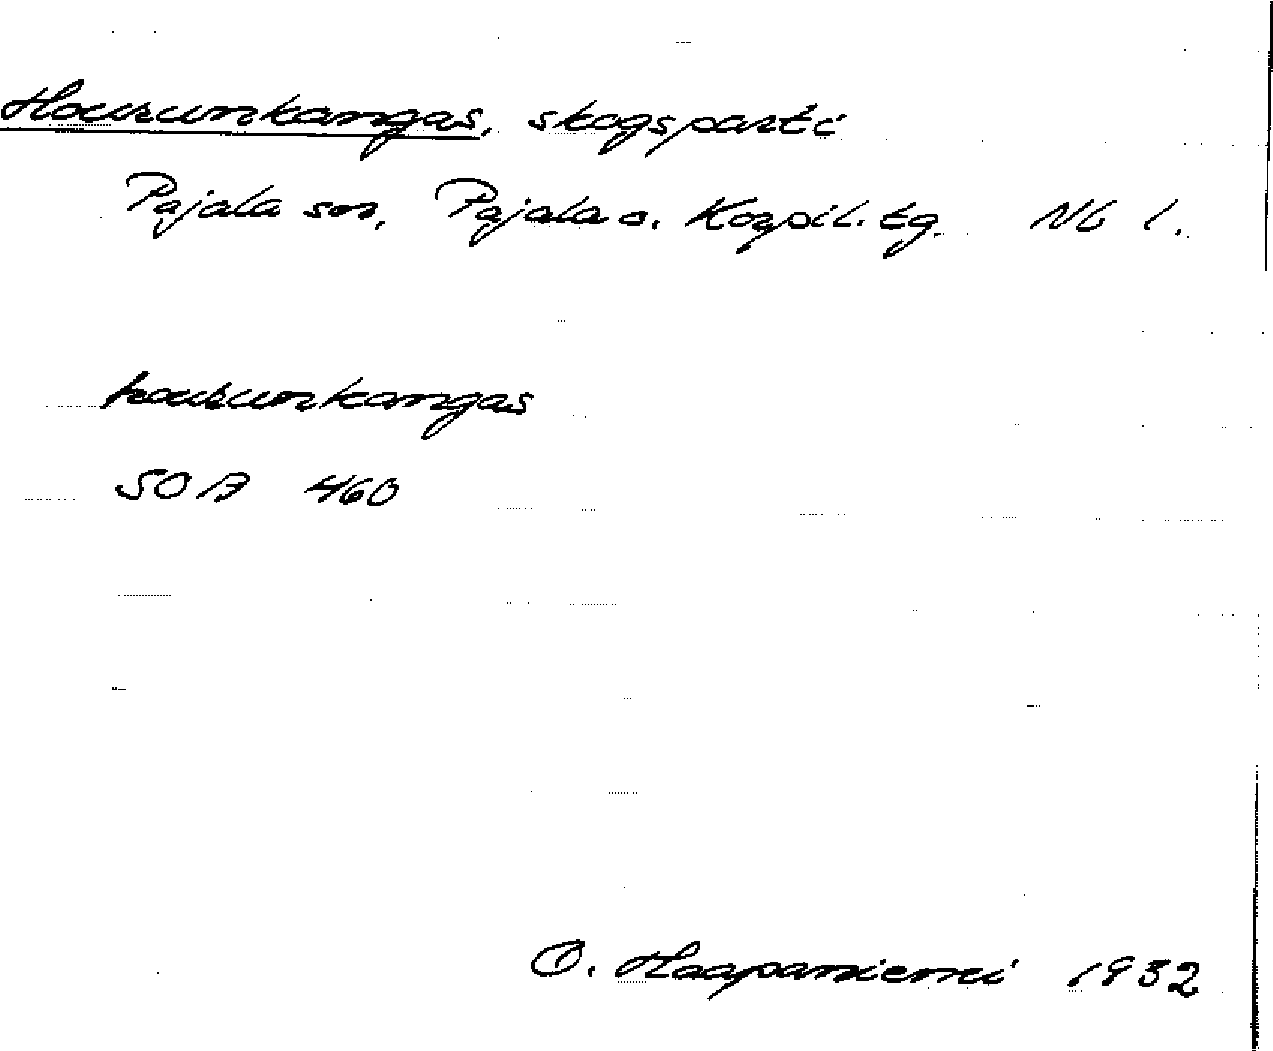 Hourunkangas, skogsparti
Pajala sn, Pajala o. Korpil. tg. Nb l.
hourunkangas
SOA 460
O. Haapaniemi 1932